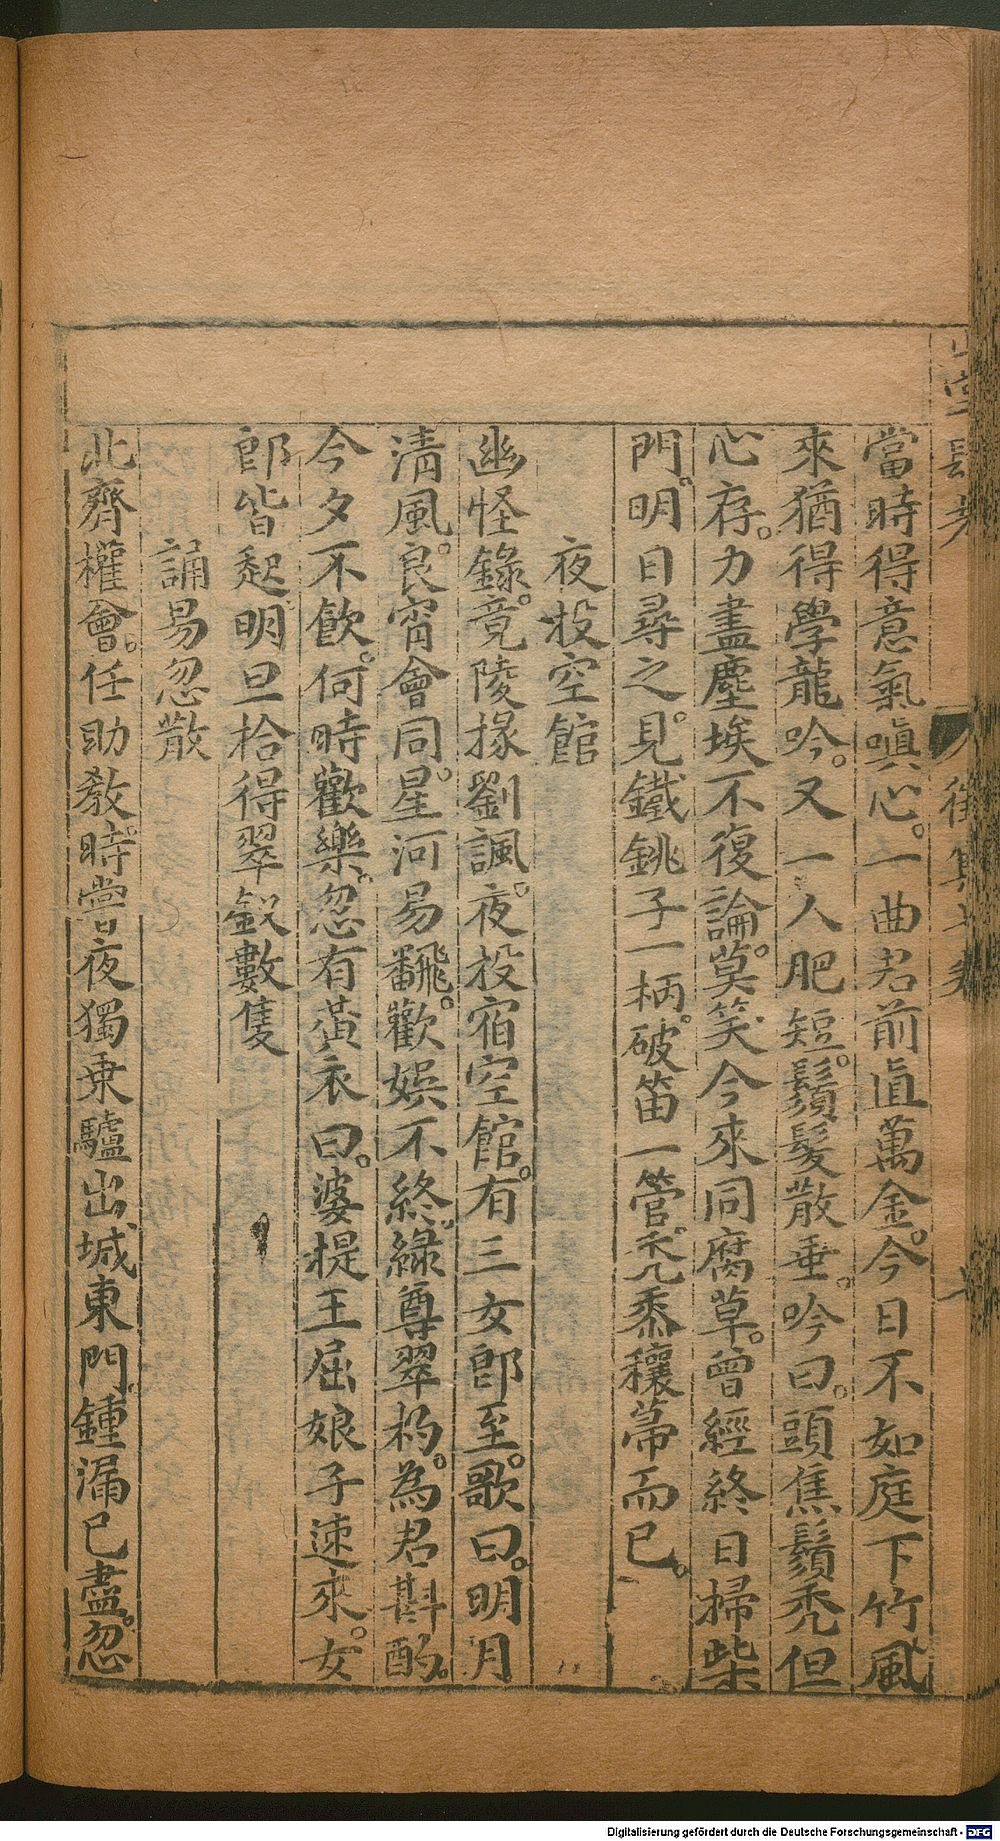 當時得意氣嗔心。一曲君前直萬金。今日不如庭下竹風
來猶得學龍吟。又一人肥短。鬚髮散垂。吟曰。頭焦鬚禿但
心存。力盡塵埃不復論。莫笑今來同腐草。曾經終日掃柴
門。明日尋之。見鐵銚子一柄。破笛一管。禿黍穰箒而已。
夜投空館
幽怪錄。竟陵掾劉諷。夜投宿空館。有三女郎至。歌曰。明月
清風。良宵會同。星河易翻。歡娛不終。綠尊翠杓。為君斟酌。
今夕不飲。何時歡樂。忽有黃衣曰。婆提王屈娘子速來。女
郎皆起明旦拾得翠釵數隻
誦易忽散
北齊權會。任助教。時嘗夜獨乗驢出城東門。鍾漏已盡。忽
Digitalisierung gefördert durch die Deutsche Forschungsgemeinschaft - DFG